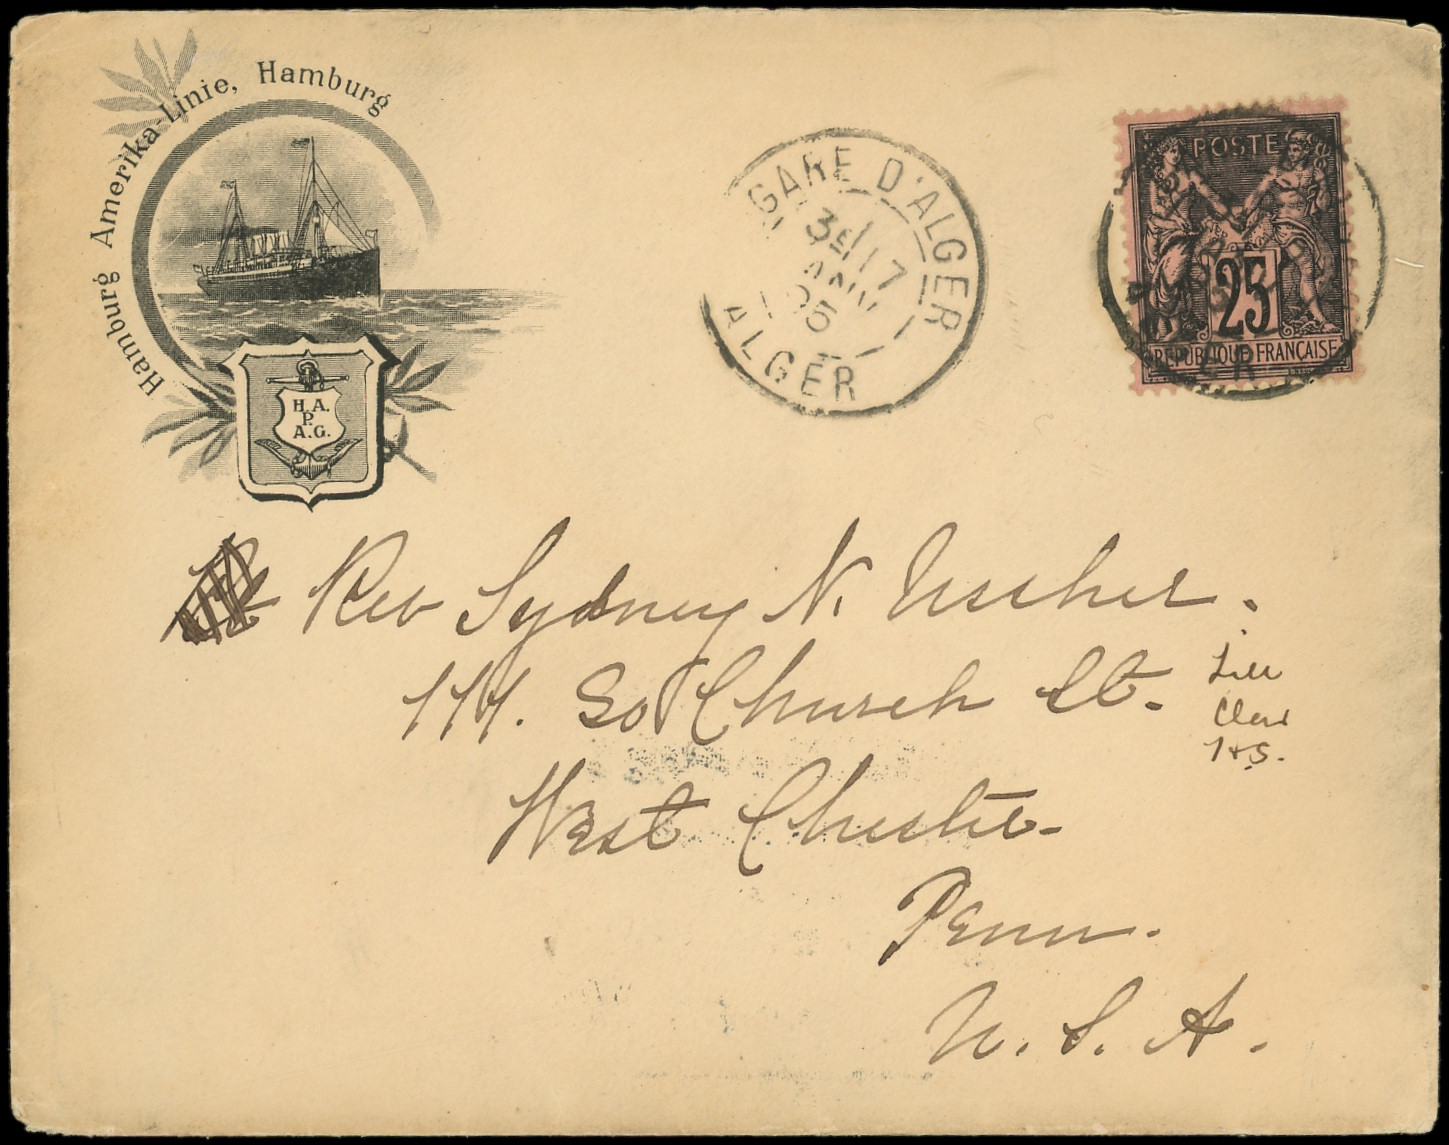 Hamburg Amerika-Linie, Hamburg
H. A.
P.
A. G.
GARE D'ALGER
3E 17
JANV
95
ALGER
POSTE
25
REPUBLIQUE FRANCAISE
Rev Sydney N. Ussher.
111. So Church St.
West Chester
Penn.
U. S. A.